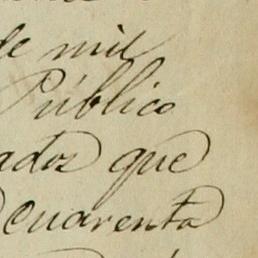 de mil
Público
ados que
cuarenta